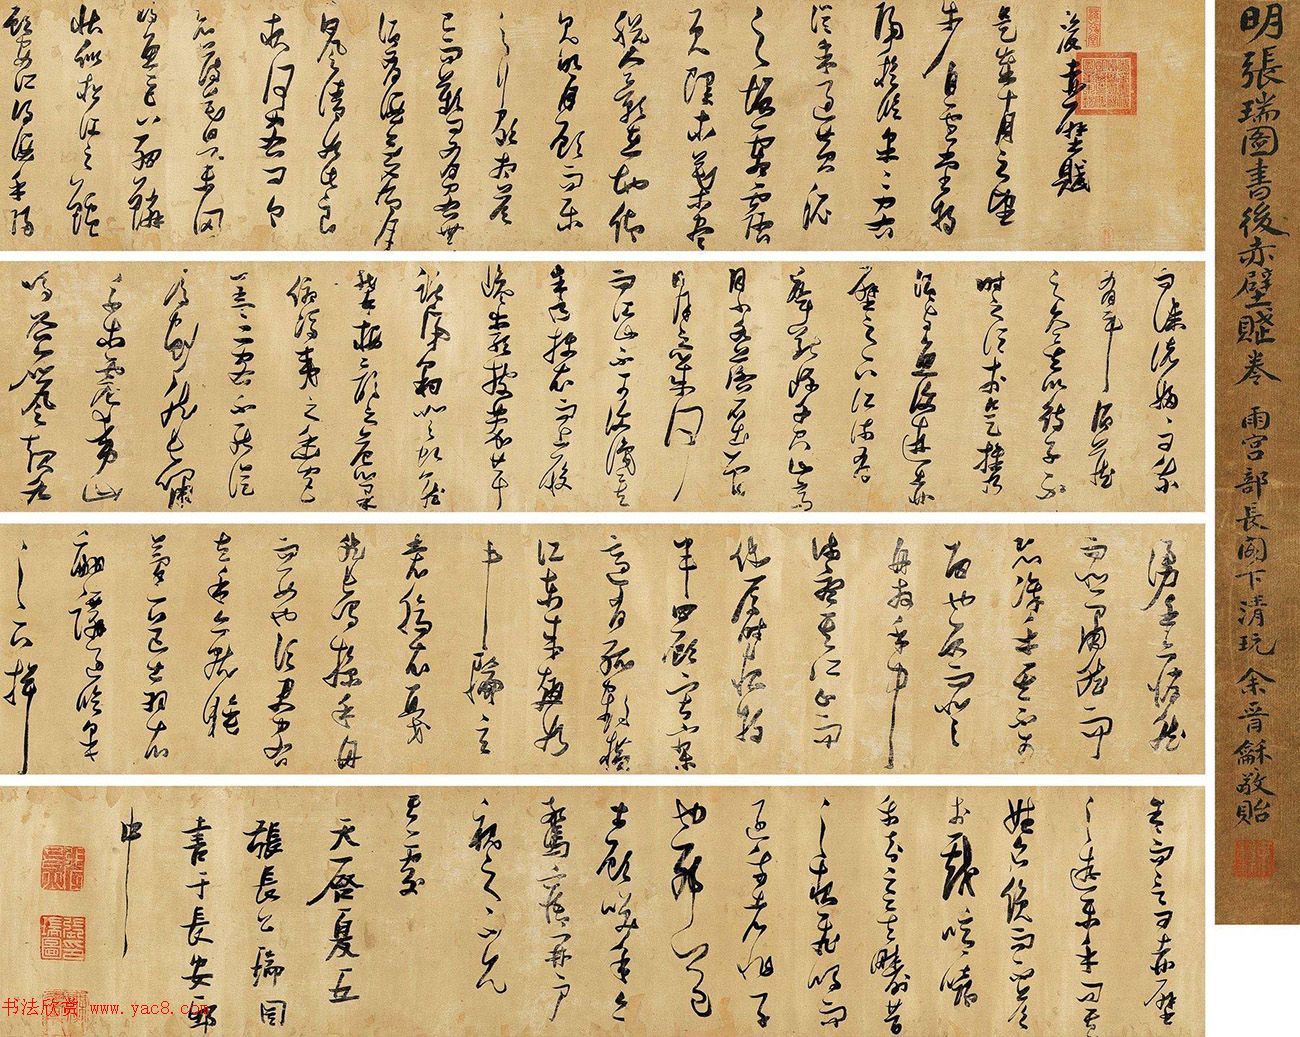 明張瑞圖書後赤壁賦卷 雨宮部長閣下清玩 余晉龢敬貽
後赤壁賦
是歲十月之望
步自雪堂將
歸於臨皋二客
從余過黃泥
之坂霜露
既降木葉盡
脫人影在地仰
見明月顧而樂
之行歌相答
已而歎曰有客無
酒有酒無肴月白
風清如此良
夜何客曰今
者薄暮舉網
得魚巨口細鱗
狀似松江之鱸
顧安所得酒乎歸
而謀諸婦婦曰我
有斗酒藏
之久矣以待子不
時之須於是攜
酒與魚復遊赤
壁之下江流有
聲斷岸千尺山高
月小水落石出曾
日月之幾何
而江山不可復識矣
余乃攝衣而上履
巉岩披蒙茸
踞虎豹登虬龍
攀棲鶻之危巢
俯馮夷之幽宮
蓋二客不能從
焉劃然長嘯
草木震動山
鳴谷應風起水
湧余亦悄然
而悲肅然而
恐凜乎其不可
留也反而登
舟放乎中
流聽其所止而
休焉時夜將
半四顧寂寥
適有孤鶴橫
江東來翅如
車輪玄
裳縞衣戛
然長鳴掠予舟
而西也須臾客
去予亦就睡
夢一道士羽衣
翩躚過臨皋
之下揖
予而言曰赤壁
之遊樂乎問其
姓名俛而不答
嗚呼噫嘻
我知之矣疇昔
之夜飛鳴而
過我者非子
也耶道
士顧笑予亦
驚寤開戶
視之不見
其處
天啓夏五
張長公瑞圖
書于長安邸
中
書法欣赏 www.yac8.com